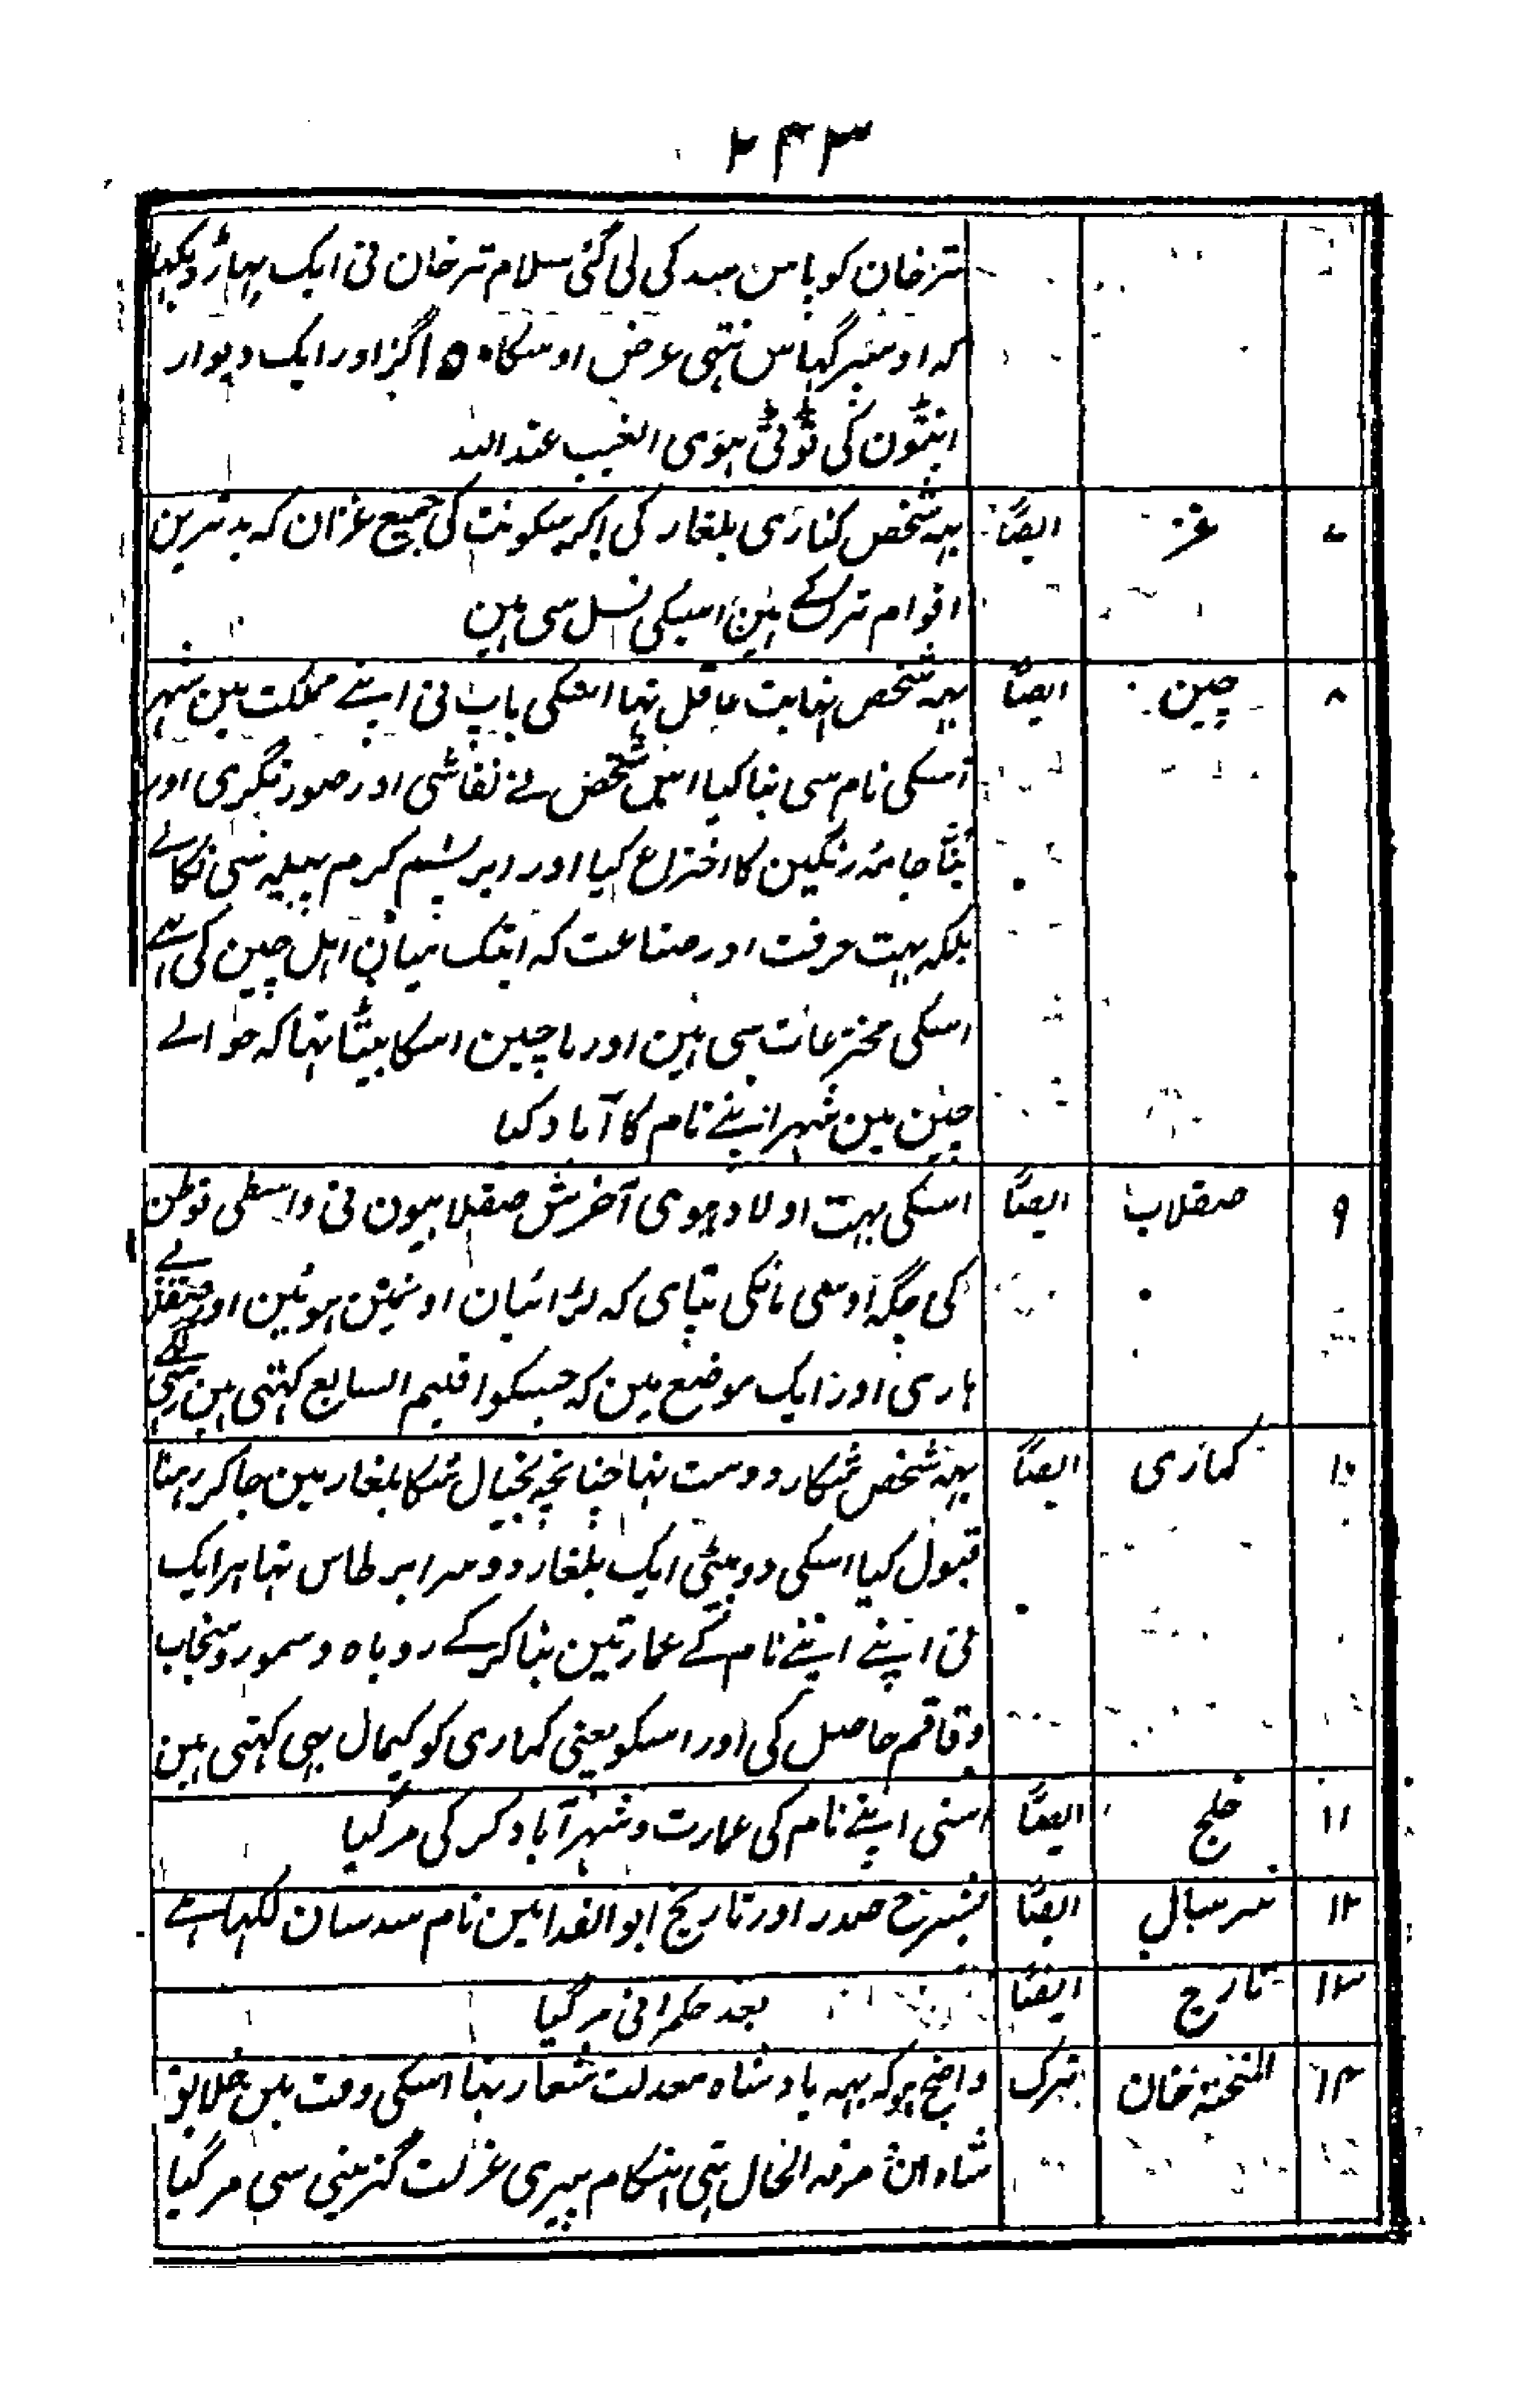 ۲۴۳
ترخان کو پاس سد کی لی گئی سلام ترخان نی ایک پہاڑ دیکہا
کہ اوسپر گہاس نتہی عرض اوسکا ۱۵۰ گز اور ایک دیوار
اینٹون کی ٹوٹی ہوی الغیب عند اللہ
۷ غز ایضاً یہہ شخص کناری بلغار کی اکر سکونت کی جمیع غزان کہ بدترین
اقوام ترک کے ہین اسیکی نسل سی ہین
۸ چین ایضاً یہہ شخص نہایت عاقل تہا اسکی باپ نی اپنے مملکت مین شہر
اسکی نام سی بنا کیا اس شخص نے نقاشی اور صورتگری اور
بُننا جامہ رنگین کا اختراع کیا اور ابریشم کرم پیلہ سی نکالے
بلکہ بہت حرفت اور صناعت کہ ابتک میان اہل چین کی ہے
اسکی مخترعات سی ہین اور ماچین اسکا بیٹا تہا کہ حوالے
چین مین شہر اپنے نام کا آباد کیا
۹ صقلاب ایضاً اسکی بہت اولاد ہوی آخرش صقلابیون نی واسطی توطن
کی جگہ اوسی مانگی بتای کہ لڑائیان اونمین ہوئین اور صقلابے
ہاری اور ایک موضع مین کہ جسکو اقلیم السابع کہتی ہین رہنی لگے
۱۰ کماری ایضاً یہہ شخص شکار دوست تہا چنانچہ بخیال شکار بلغار مین جاکر رہنا
قبول کیا اسکی دو بیٹی ایک بلغار دوسرا برطاس تہا ہر ایک
نی اپنے اپنے نام کے عمارتین بنا کر کے روباہ و سمور و سنجاب
و قاقم حاصل کی اور اسکو یعنی کماری کو کیمال بہی کہتی ہین
۱۱ خلج ایضاً اسنی اپنے نام کی عمارت و شہر آباد کر کی مر گیا
۱۲ سرسبال ایضاً بشرح صدر اور تاریخ ابو الفدا مین نام سدسان لکہا ہے
۱۳ تارج ایضاً بعد حکمرانی مر گیا
۱۴ خان ترک واضح ہو کہ یہہ بادشاہ معدلت شعار تہا اسکی وقت مین خلایق
شادان مرفہ الحال تہی ہنگام پیری عزلت گزینی سی مر گیا